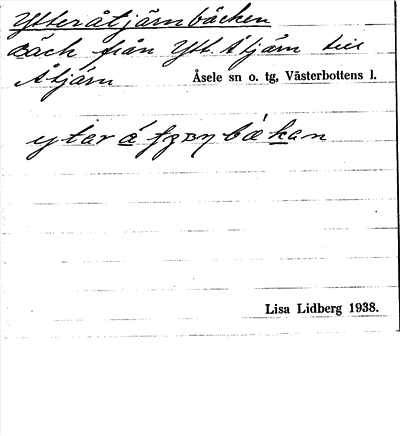 Ytteråtjärnbäcken
Bäck från Ytt. Åtjärn till
Åtjärn
Åsele sn o. tg, Västerbottens l.
Lisa Lidberg 1938.